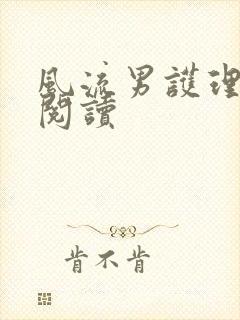 風流男護理
閱讀
肯不肯